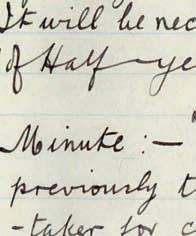 It will be nec
of Half-ye
Minute :-
previously t
-taker for c